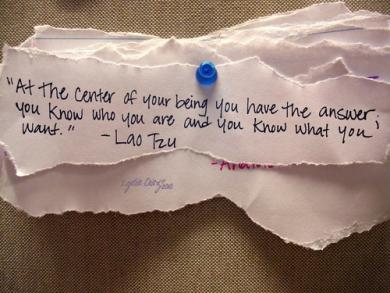 "At the center of your being you have the answer;
you know who you are and you know what you
want."
-Lao Tzu